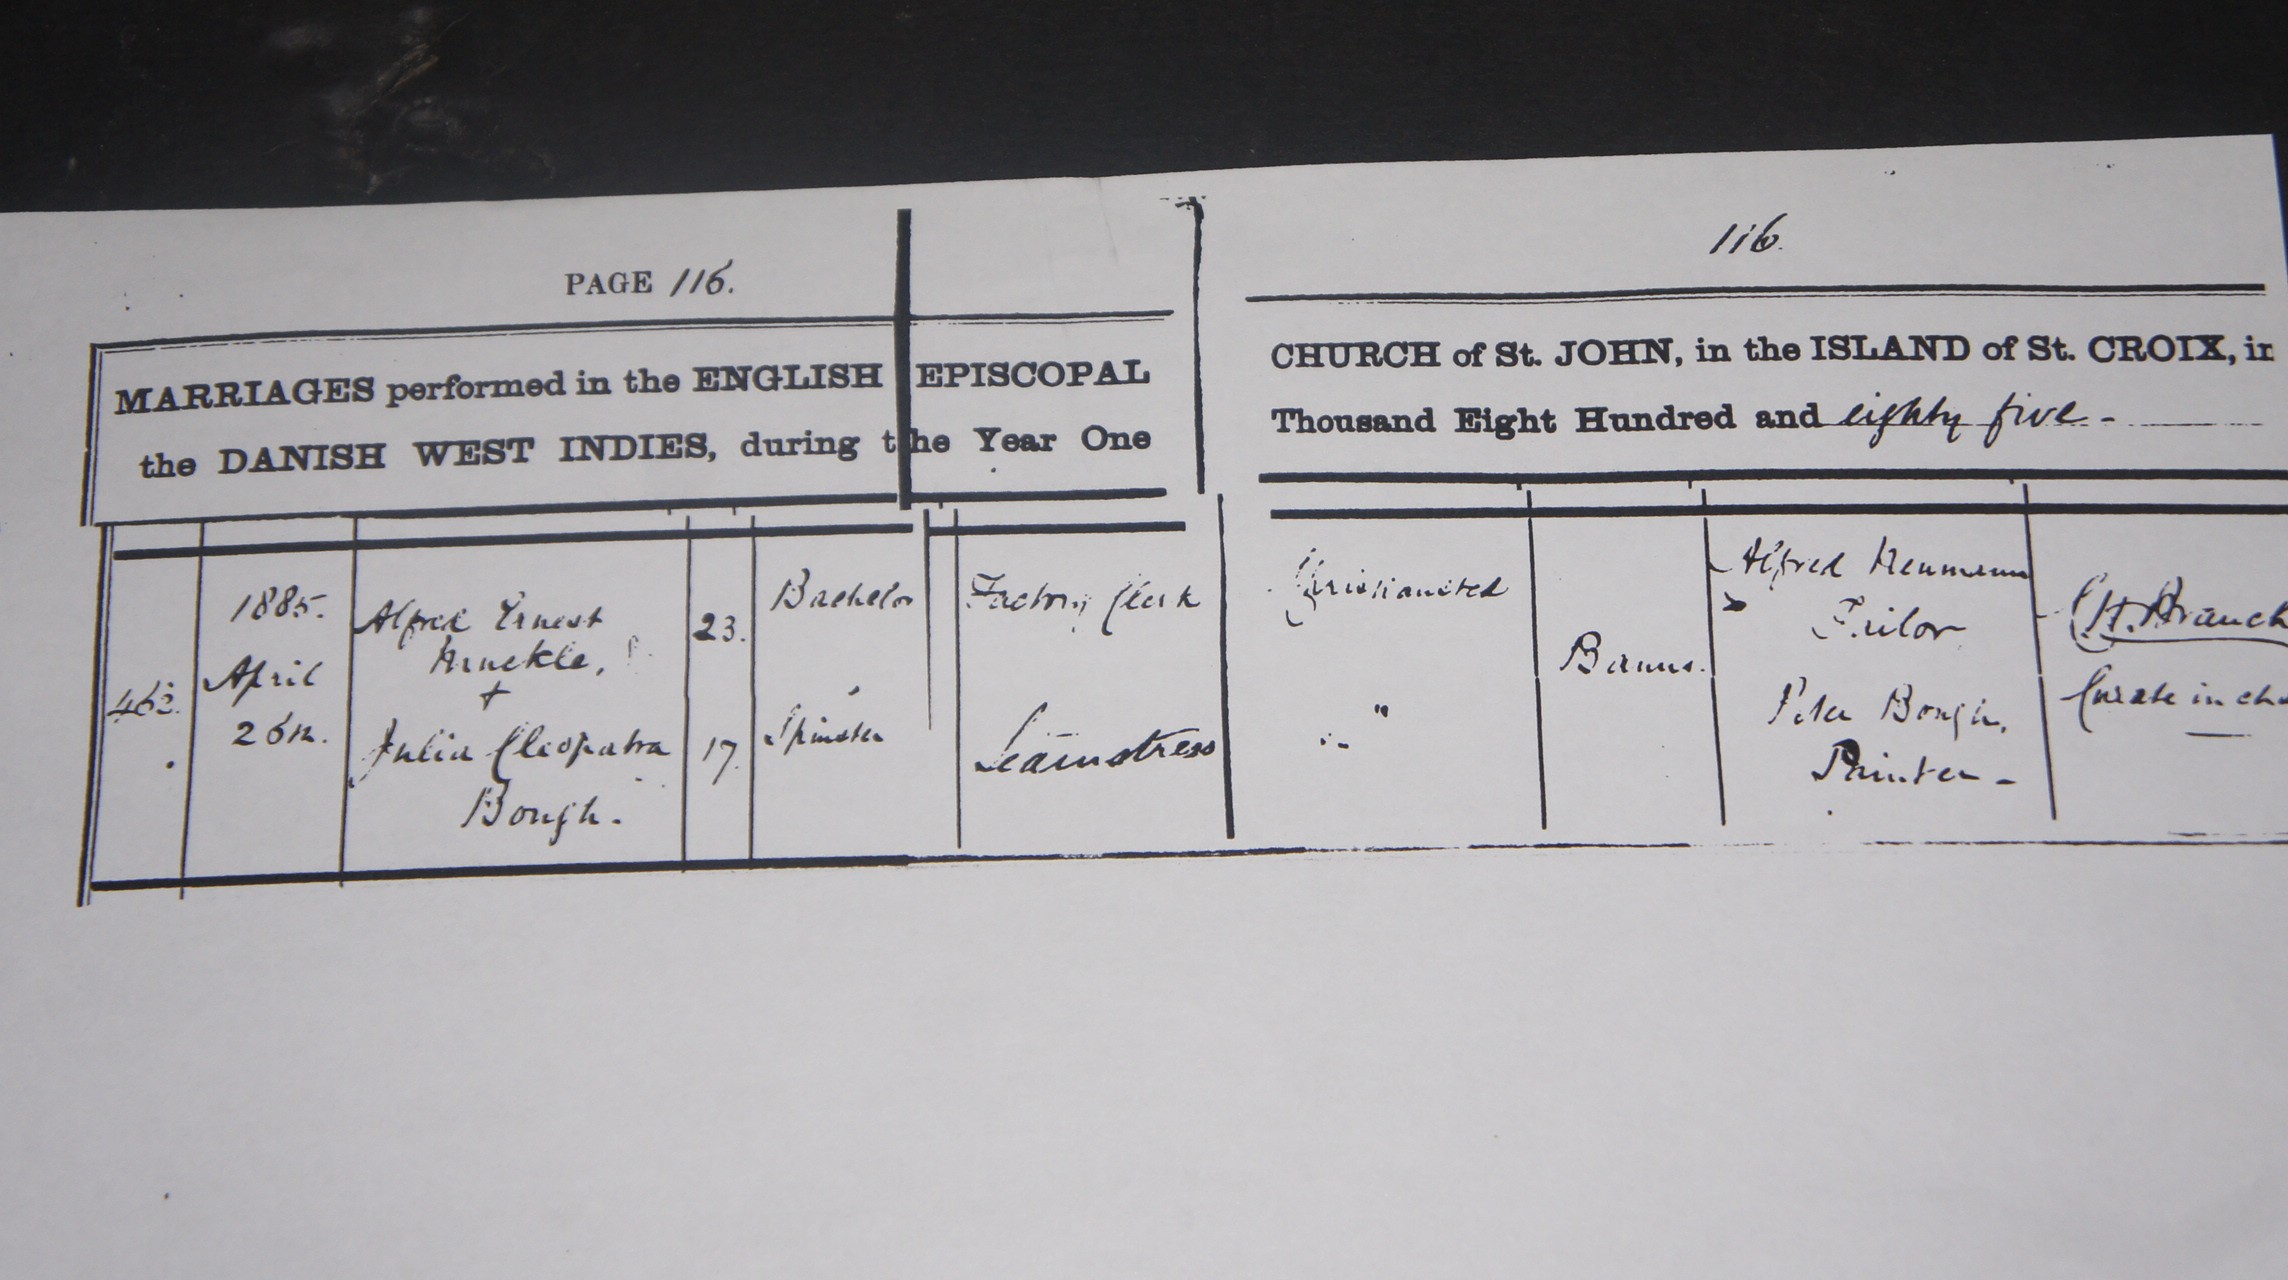 PAGE 116.
116.
MARRIAGES performed in the ENGLISH EPISCOPAL
the DANISH WEST INDIES, during the Year One
CHURCH of St. JOHN, in the ISLAND of St. CROIX, in
Thousand Eight Hundred and eighty five -
1885.
April
26th.
Alfred Ernest
+
Julia Cleopatra
Bough.
23.
17.
Bachelor
Spinster
Factory Clerk
Seamstress
Christiansted
"
Banns.
Alfred
Peter Bough,
Painter -
Curate in cha